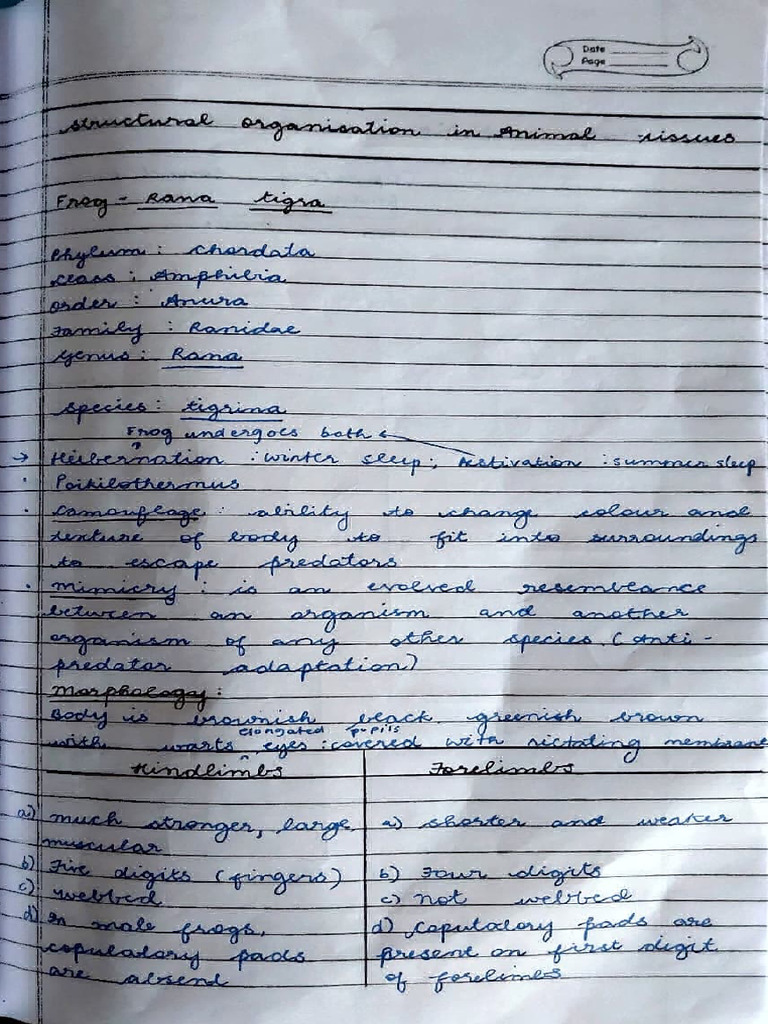 Date
Page
Structural organisation in Animal tissues
Frog - Rana tigra
Phylum : Chordata
Class : Amphibia
Order : Anura
Family : Ranidae
Genus : Rana
Species : tigrina
Frog undergoes both
→ Heibernation : winter sleep; Aestivation : summer sleep
· Poikilothermus
· Camouflage : ability to change colour and
texture of body to fit into surroundings
to escape predators
· Mimicry : is an evolved resemblance
between an organism and another
organism of any other species. (Anti-
predator adaptation)
Morphology :
Body is brownish black greenish brown
elongated pupils
with warts eyes : covered with nictating membrane
Hindlimbs Forelimbs
a) much stronger, large, a) shorter and weaker
muscular
b) Five digits (fingers) b) Four digits
c) webbed c) not webbed
d) In male frogs, d) Copulatory pads are
copulatory pads present on first digit
are absend of forelimbs